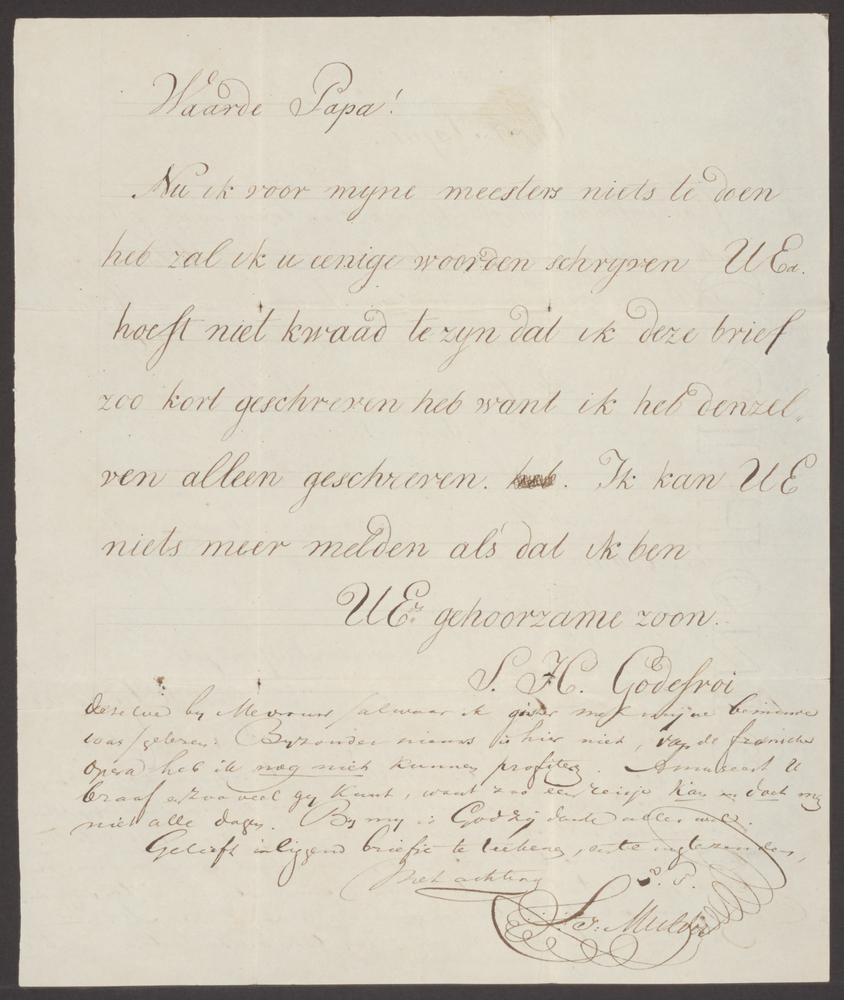 Waarde Papa!
Nu ik voor myne meesters niets te doen
heb zal ik u eenige woorden schryven UEd.
hoeft niet kwaad te zyn dat ik deze brief
zoo kort geschreven heb want ik heb denzel-
ven alleen geschreven. Ik kan UE
niets meer melden als dat ik ben
UEs gehoorzame zoon.
S. H. Godefroi
dezelve by Mevrouw /alwaar ik gister met mijne beminde
was/gelezen. Byzonder nieuws is hier niet, van de fransche
opera heb ik nog niet kunnen profiteren. Amuseert U
braaf en zoo veel gy kunt, want zoo een reisje kan en doet my
niet alle dagen. By my is God zy dank alles wel.
Gelieft inliggend briefje te
Met achting
S. Mulder